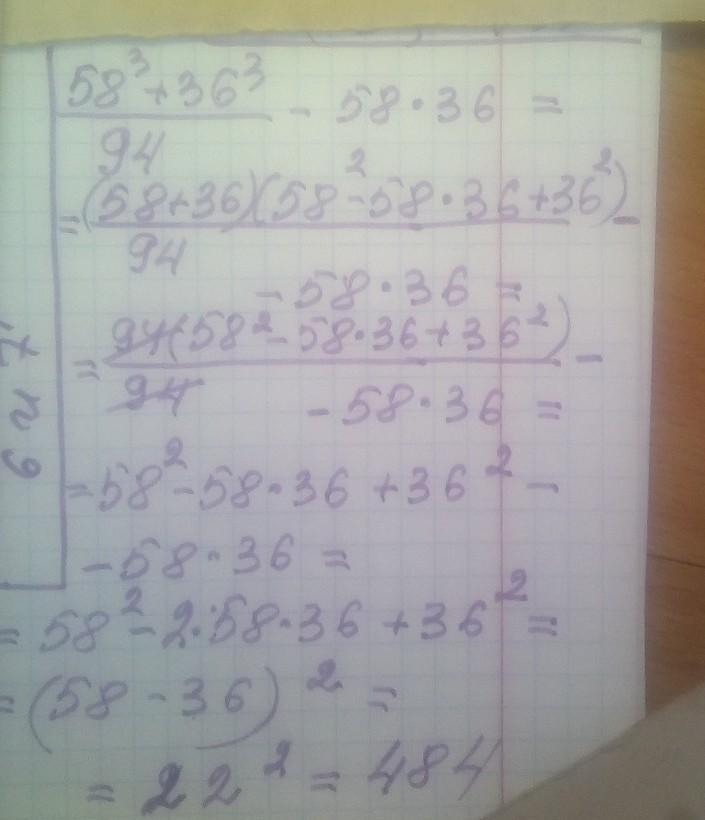 58³+36³
— - 58·36 =
94
= (58+36)(58²-58·36+36²) -
94
- 58·36 =
= 94(58²-58·36+36²) -
94
- 58·36 =
= 58²-58·36+36² -
- 58·36 =
= 58²-2·58·36+36² =
= (58-36)² =
= 22² = 484